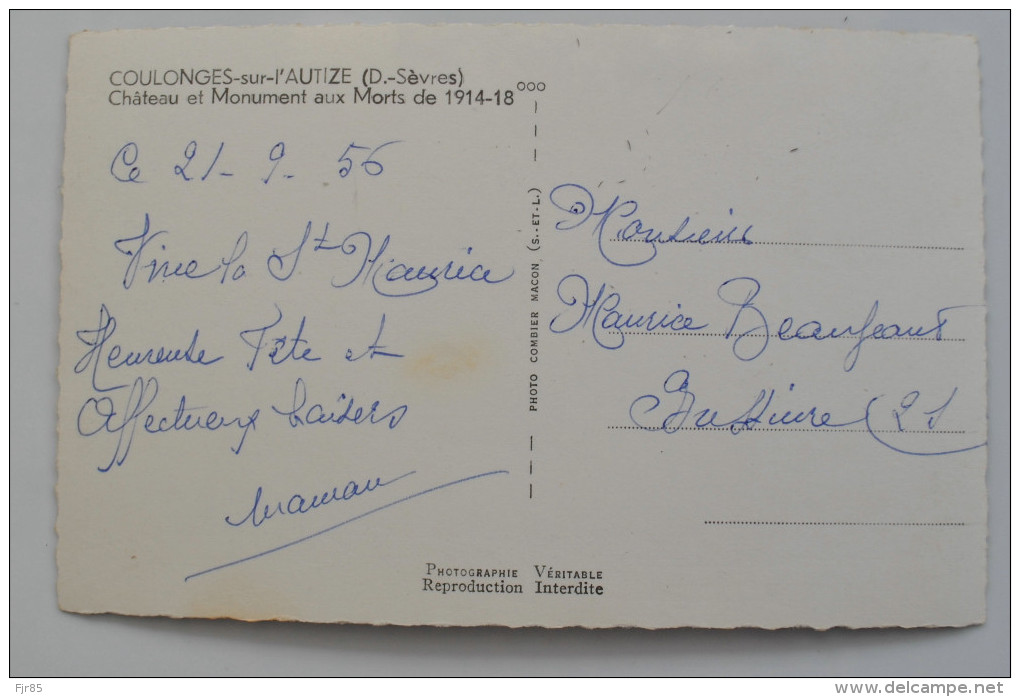 COULONGES-sur-l'AUTIZE (D.-Sèvres)
Château et Monument aux Morts de 1914-18
Ce 21-9-56
Vive la St Maurice
Heureuse Fête et
Affectueux baisers
Maman
PHOTO COMBIER MACON (S.-ET-L.)
Monsieur
Maurice Beaufeaut
PHOTOGRAPHIE VÉRITABLE
Reproduction Interdite
Fjr85
www.delcampe.net